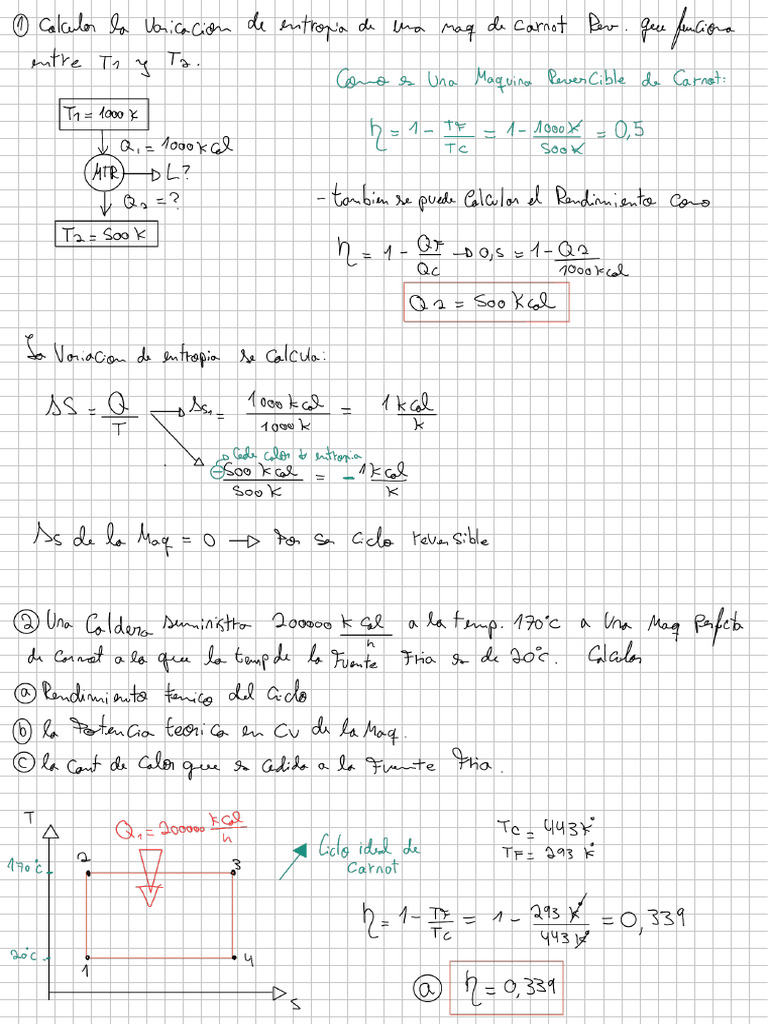 ① Calcular la Variacion de entropia de una maq de Carnot Rev. que funciona
entre T1 y T2.
Como es Una Maquina Revercible de Carnot:
T1 = 1000 K
Q1 = 1000 kcal
MTR → L?
Q2 = ?
T2 = 500 K
η = 1 - TF/TC = 1 - 1000K/500K = 0,5
- tambien se puede Calcular el Rendimiento como
η = 1 - QF/QC → 0,5 = 1 - Q2/1000 kcal
Q2 = 500 Kcal
La Variacion de entropia se calcula:
ΔS = Q/T → Δs1 = 1000 kcal/1000 K = 1 kcal/K
Cede calor ↳ entropia
- 500 kcal/500 K = - 1 kcal/K
Δs de la Maq = 0 → Por ser Ciclo reversible
② Una Caldera suministra 200000 k Cal/h a la temp. 170°C a Una Maq Perfecta
de Carnot a la que la temp de la Fuente Fria es de 20°C. Calcular
ⓐ Rendimiento termico del Ciclo
ⓑ la Potencia teorica en CV de la Maq.
ⓒ la Cant de Calor que es cedida a la Fuente Fria.
T
Q1 = 200000 kcal/h
170°C
2
3
20°C
1
4
S
Ciclo ideal de
Carnot
TC = 443 K°
TF = 293 K°
η = 1 - TF/TC = 1 - 293 K°/443 K° = 0,339
ⓐ η = 0,339